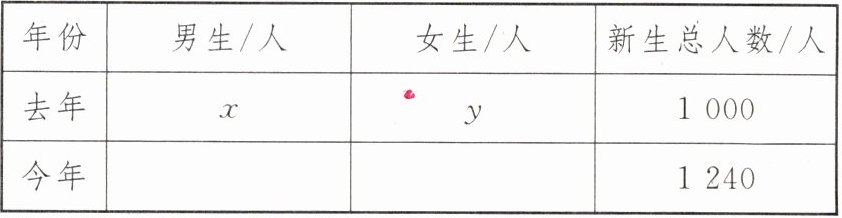 年份 男生/人 女生/人 新生总人数/人
去年 x y 1 000
今年 1 240